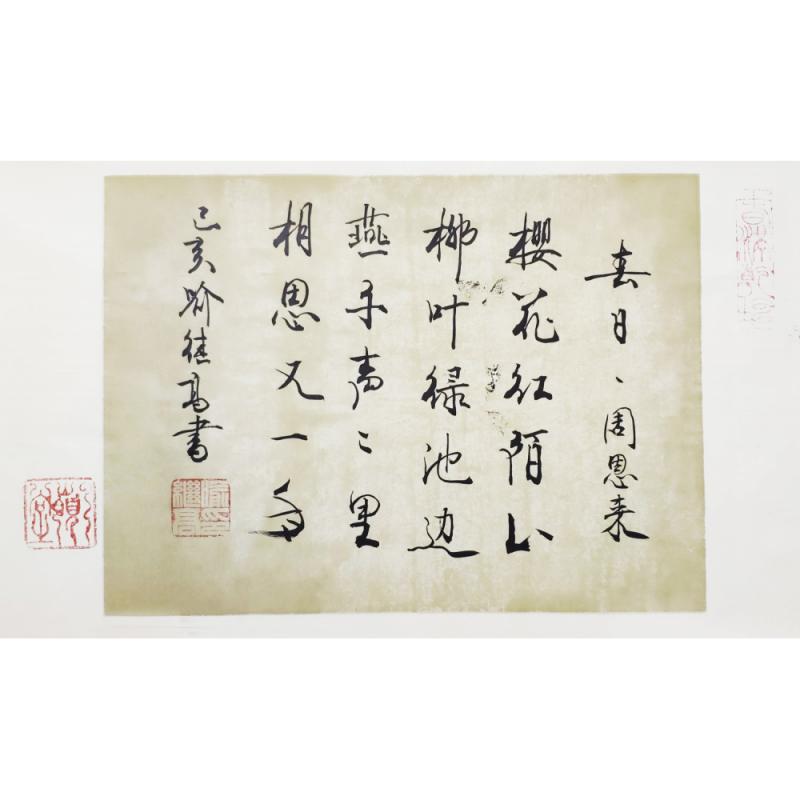 春日、周恩来
櫻花红陌上
柳叶绿池边
燕子声〻里
相思又一年
己亥喻继高書